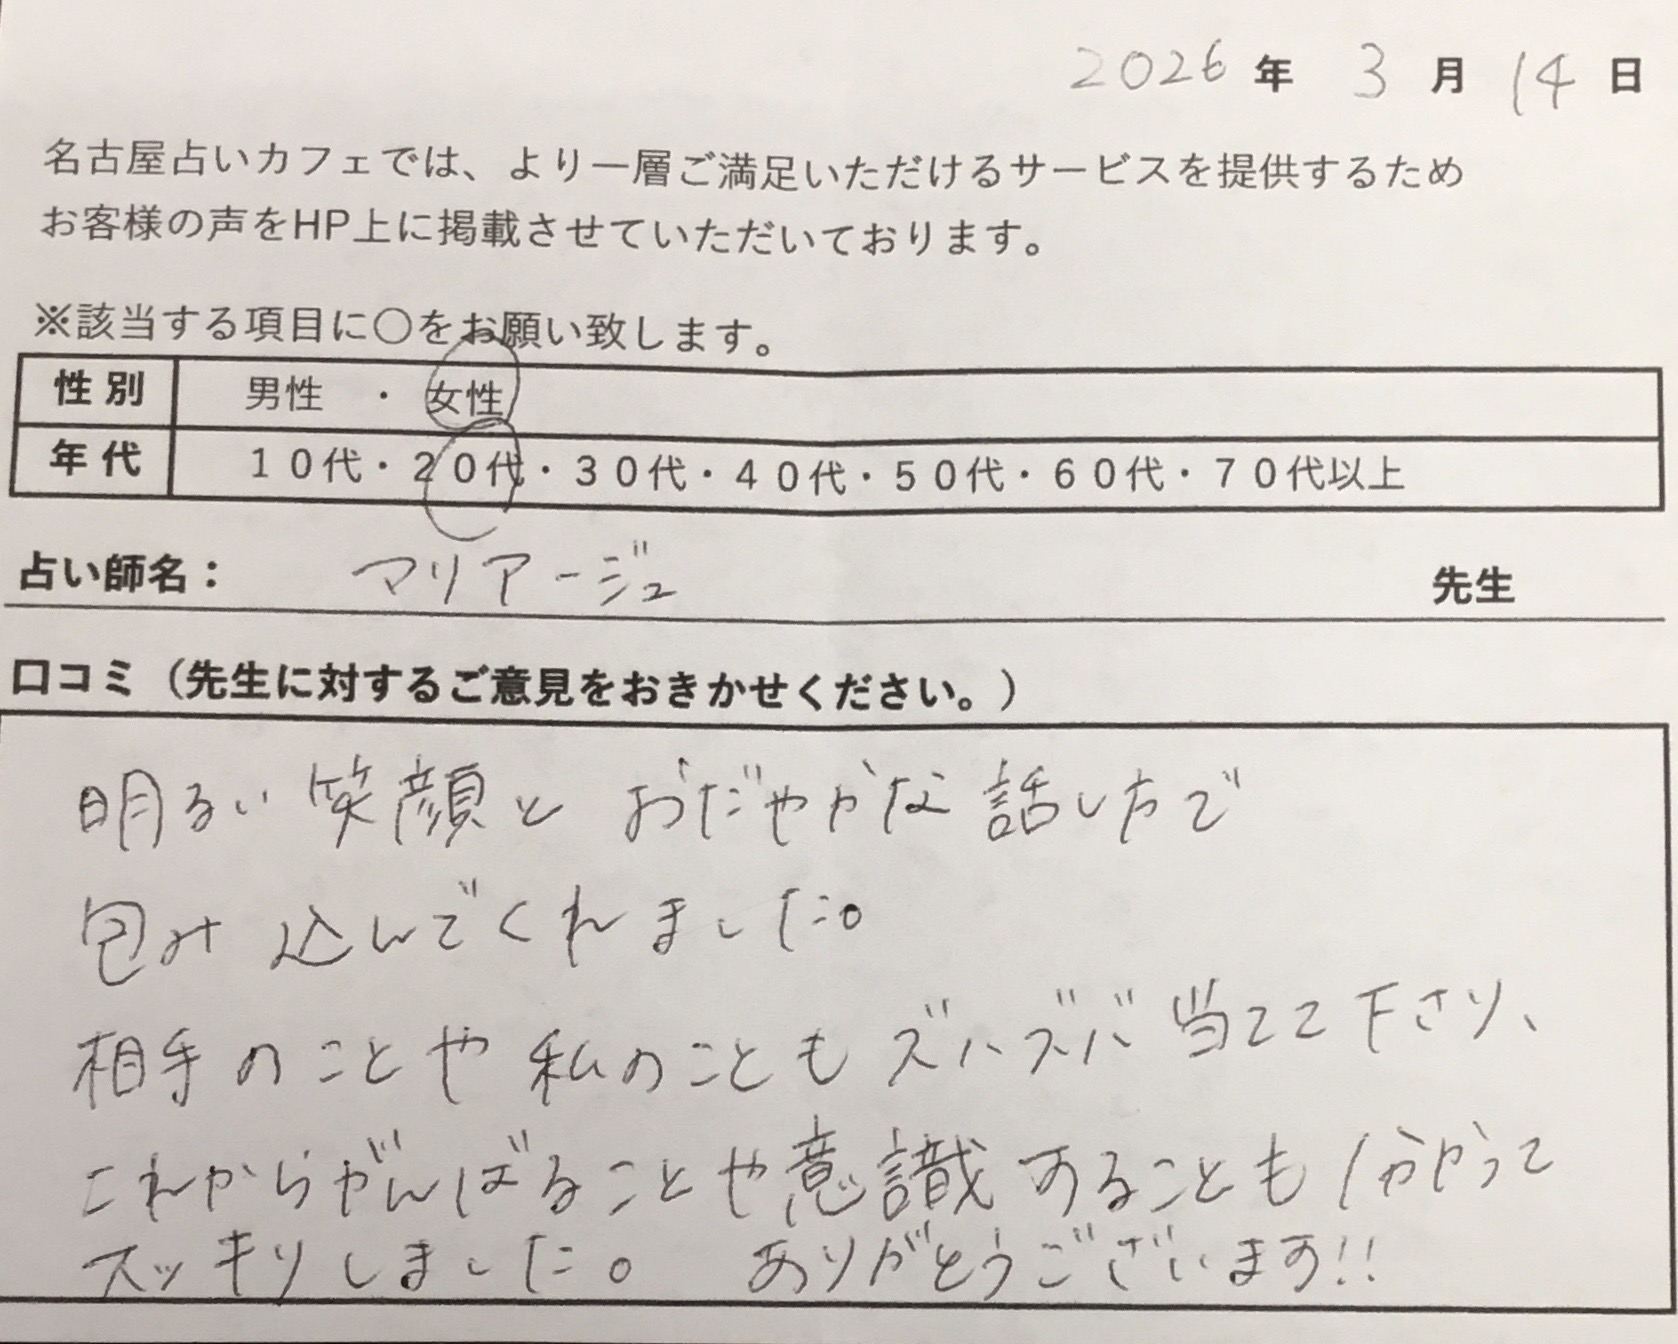 2026年 3月 14日
名古屋占いカフェでは、より一層ご満足いただけるサービスを提供するため
お客様の声をHP上に掲載させていただいております。
※該当する項目に〇をお願い致します。
性別 男性 ・ 女性
年代 １０代・２０代・３０代・４０代・５０代・６０代・７０代以上
占い師名： マリアージュ 先生
口コミ（先生に対するご意見をおきかせください。）
明るい笑顔と おだやかな 話し方で
包み込んでくれました。
相手のことや 私のことも ズバズバ 当てて下さり、
これからがんばることや意識することも 分かって
スッキリしました。 ありがとうございます!!